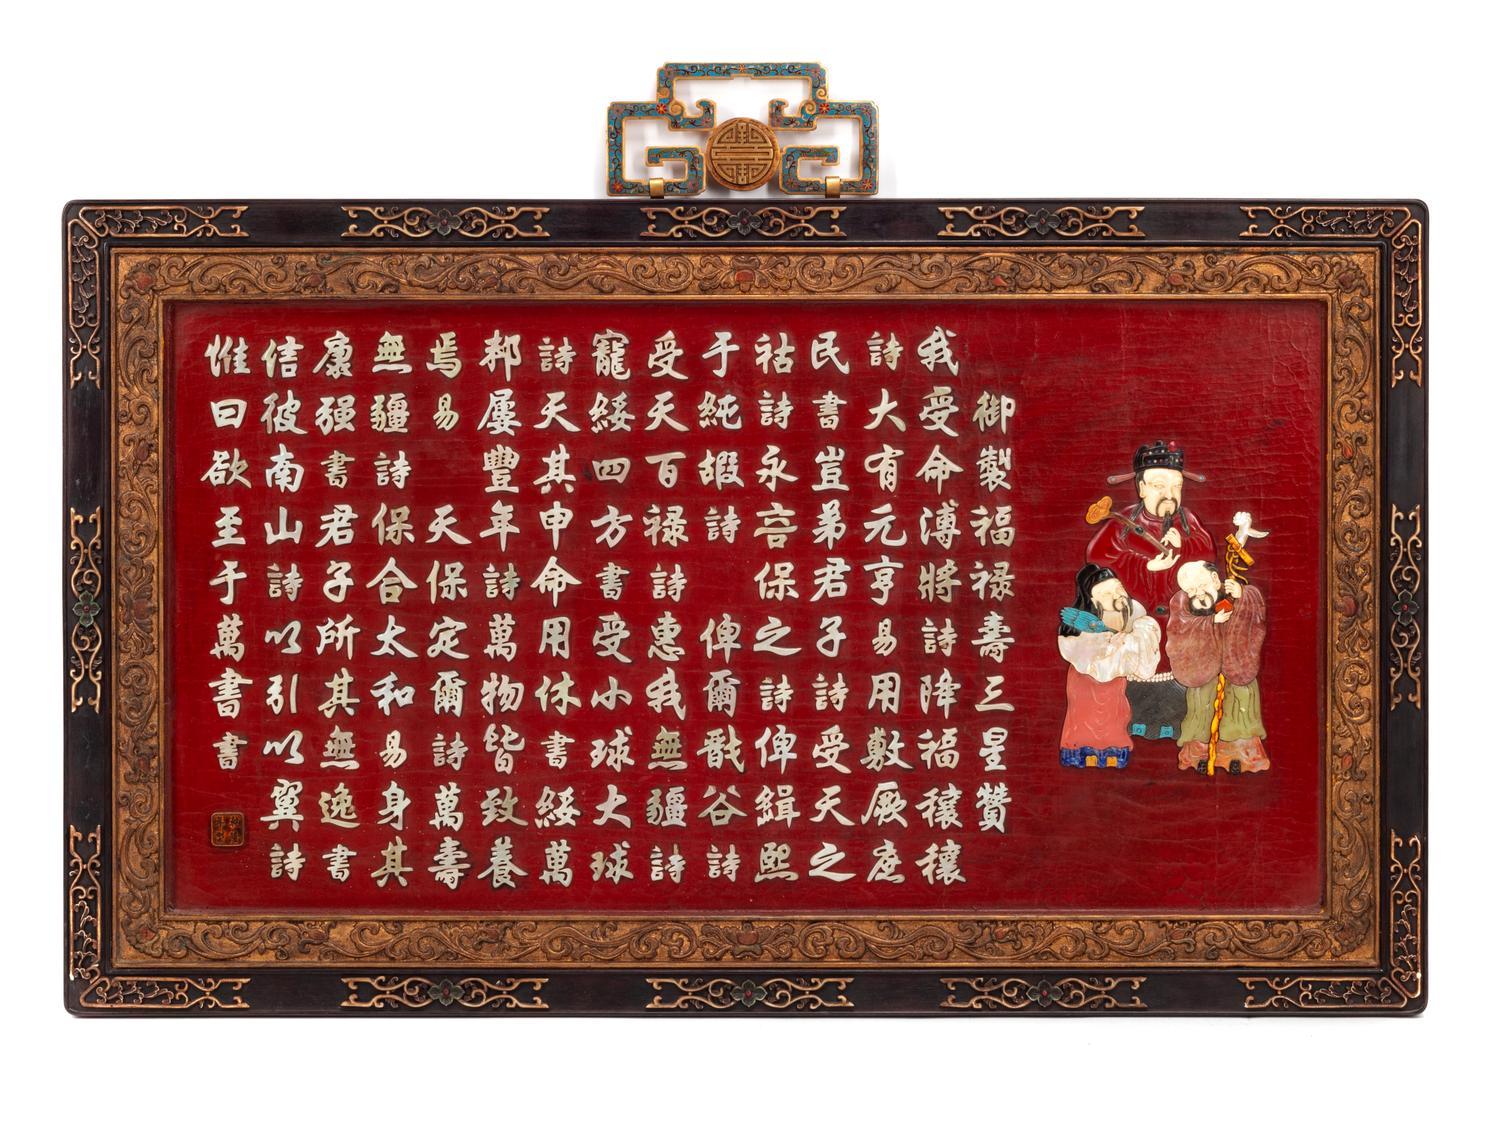 御製福禄壽三星贊
我受命溥將詩降福穰穰
詩大有元亨易用敷厥庶
民書豈弟君子詩受天之
祜詩永言保之詩俾緝熙
于純嘏詩 俾爾戩谷詩
受天百禄詩惠我無疆詩
寵綏四方書受小球大球
詩天其申命用休書綏萬
邦屢豐年詩萬物皆致養
焉易 天保定爾詩萬壽
無疆詩保合太和易身其
康强書君子所其無逸書
信彼南山詩以引以翼詩
惟曰欲至于萬書書